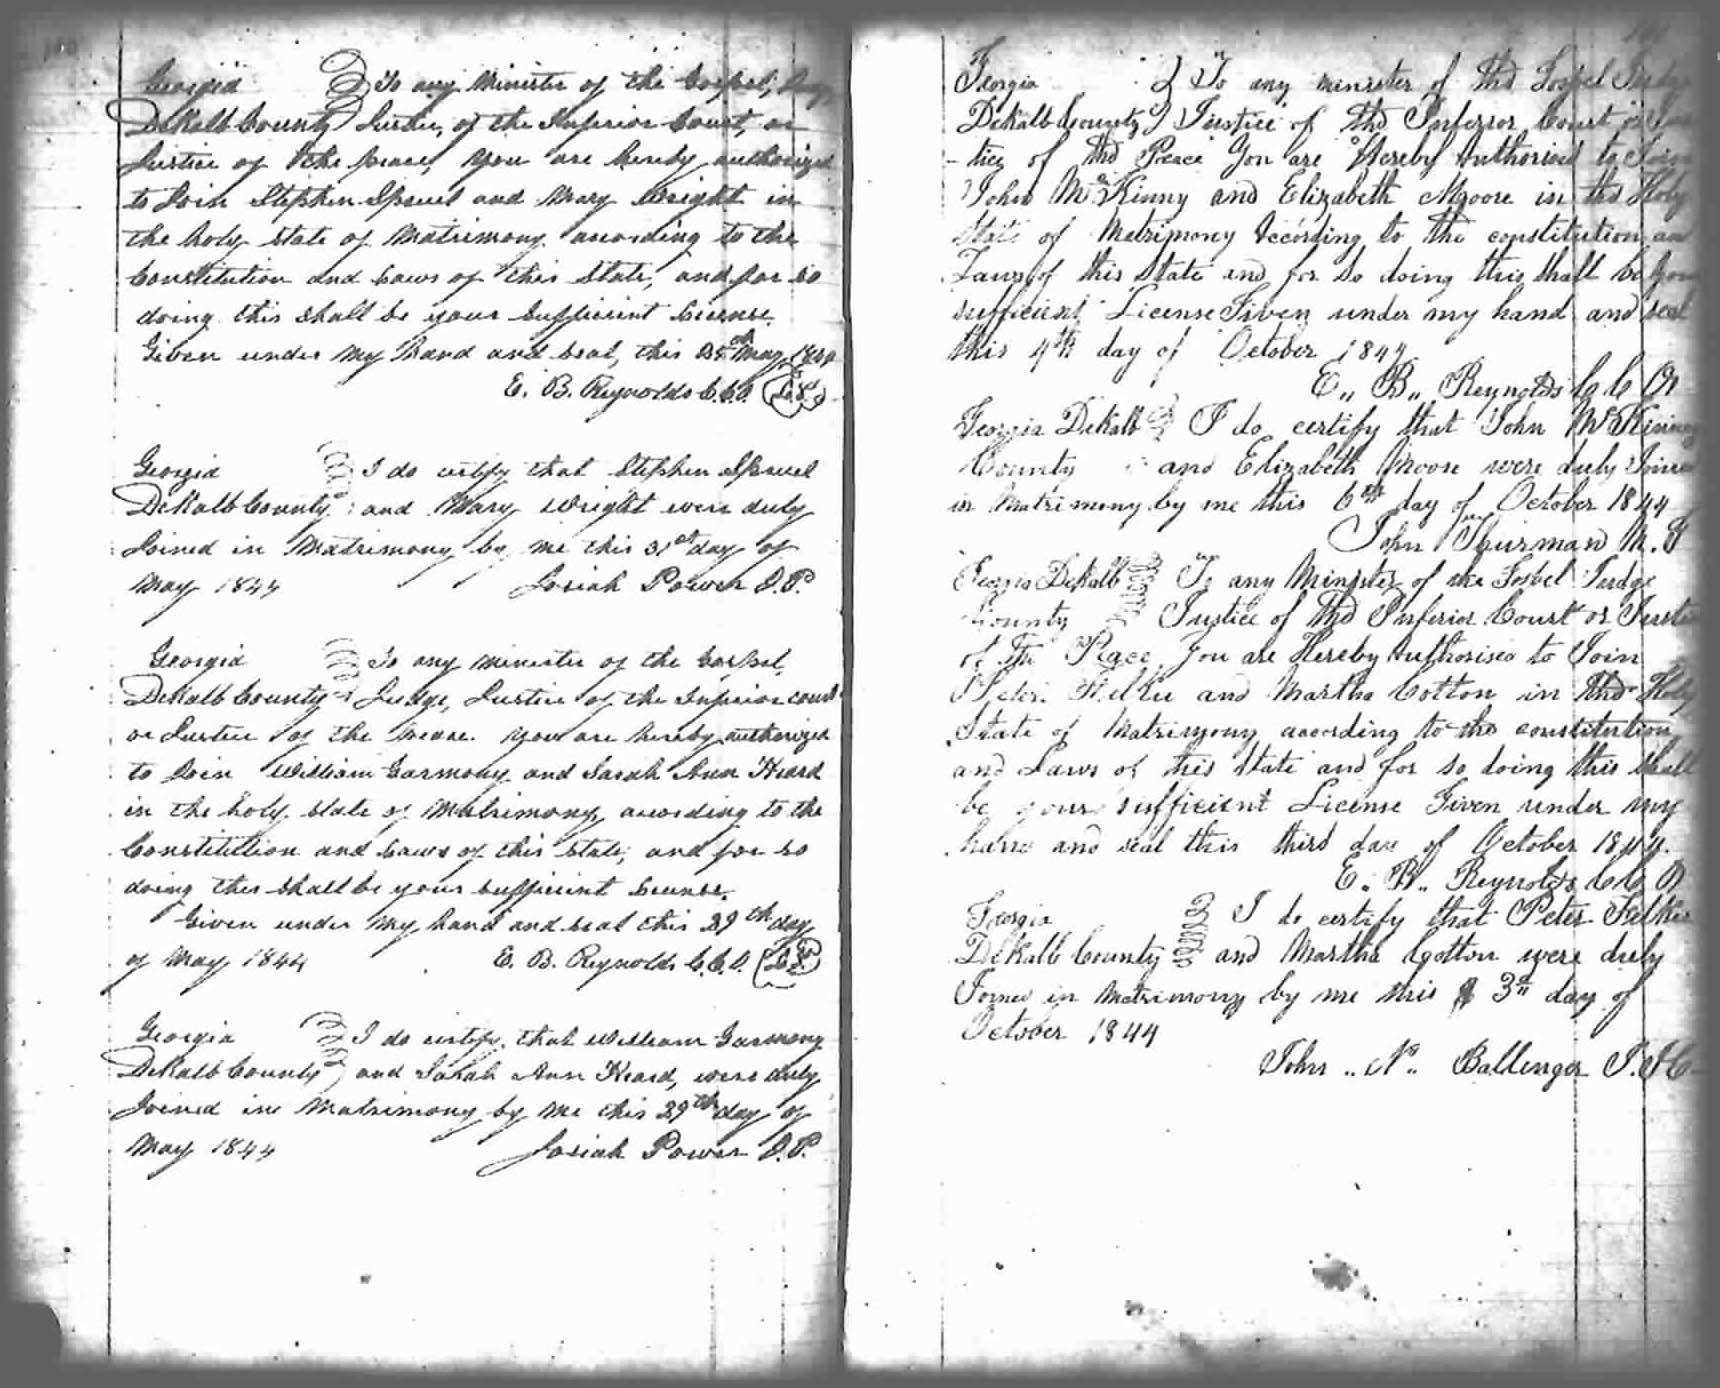 Georgia To any Minister of the Gospel, Judge
DeKalb County Justice, of the Inferior Court, or
Justice of the peace, you are hereby authorized
to Join Stephen Spruel and Mary Wright in
the holy state of Matrimony according to the
Constitution and Laws of this State, and for so
doing this shall be your sufficient License.
Given under My Hand and seal, this May 1844
E. B. Reynolds C.C.O. L.S.
Georgia I do certify that Stephen Spruel
DeKalb County and Mary Wright were duly
Joined in Matrimony by me this 31st day of
May 1844 Josiah Power J.P.
Georgia To any Minister of the Gospel,
DeKalb County Judge, Justice of the Inferior court
or Justice of the Peace. You are hereby authorized
to Join William Garmony and Sarah Ann Heard
in the holy state of Matrimony, according to the
Constitution and Laws of this State, and for so
doing this shall be your sufficient License.
Given under My hand and seal this 29th day
of May 1844 E. B. Reynolds C.C.O. L.S.
Georgia I do certify that William Garmony
DeKalb County and Sarah Ann Heard, were duly
Joined in Matrimony by Me this 29th day of
May 1844 Josiah Power J.P.
Georgia To any minister of the Gospel Judge
DeKalb County Justice of the Inferior Court or Jus
-tice of the Peace You are Hereby Authorised to Join
John McKinny and Elizabeth Moore in the Holy
State of Matrimony According to the constitution an
Laws of this State and for so doing this shall be your
sufficient License Given under my hand and seal
this 4th day of October 1844
E,, B,, Reynolds C C O
Georgia DeKalb I do certify that John McKinney
County and Elizabeth Moore were duly Joined
in Matrimony by me this 6th day of October 1844
John M. G
Georgia DeKalb To any Minister of the Gosbel Judge
County Justice of the Inferior Court or Justice
of The Peace You are Hereby Authorised to Join
Peter Felker and Martha Cotton in the Holy
State of Matrimony according to the constitution
and Laws of this State and for so doing this shall
be your sufficient License Given under my
hand and seal this third day of October 1844.
E,, B,, Reynolds C C O
Georgia I do certify that Peter Felker
DeKalb County and Martha Cotton were duly
Joined in Matrimony by me this 3d day of
October 1844
John ,, N,, Ballenger